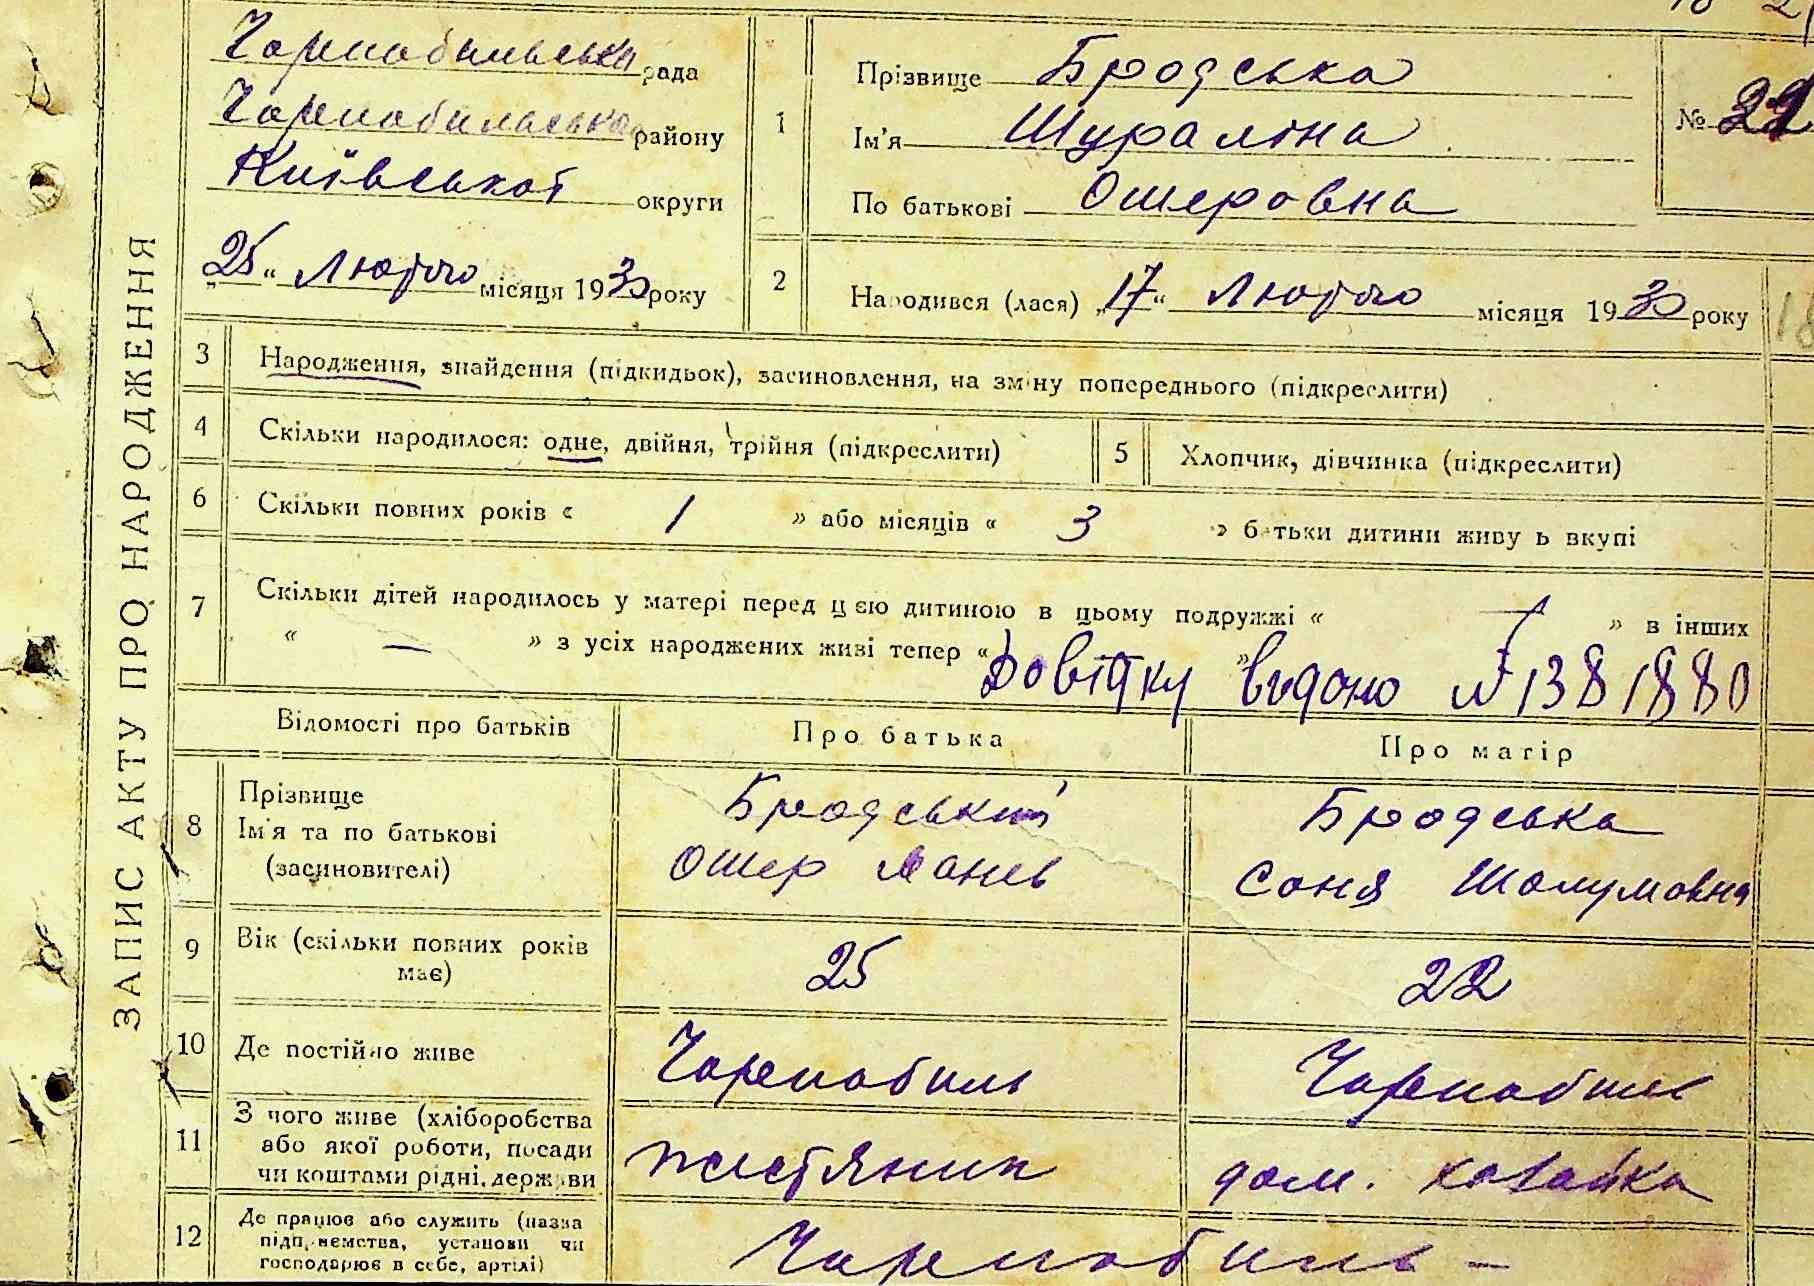 ЗАПИС АКТУ ПРО НАРОДЖЕННЯ
Чорнобильська рада
Чорнобильська району
Київської округи
„25“ Лютого місяця 1930 року
1
Прізвище Бродська
Ім'я Шураліна
По батькові Ошеровна
№
2
Народився (лася) „17“ Лютого місяця 1930 року
3 Народження, знайдення (підкидьок), засиновлення, на зміну попереднього (підкреслити)
4 Скільки народилося: одне, двійня, трійня (підкреслити)
5 Хлопчик, дівчинка (підкреслити)
6 Скільки повних років « 1 » або місяців « 3 » батьки дитини живуть вкупі
7 Скільки дітей народилось у матері перед цією дитиною в цьому подружжі « — » в інших
« — » з усіх народжених живі тепер « »
Довідку видано № 1381880
Відомості про батьків Про батька Про матір
8 Прізвище
Ім'я та по батькові
(засиновителі)
Бродський
Ошер
Бродська
Соня Шолумовна
9 Вік (скільки повних років
має)
25 22
10 Де постійно живе Чорнобиль Чорнобиль
11 З чого живе (хліборобства
або якої роботи, посади
чи коштами рідні, держави
жестяник дом. хазайка
12 Де працює або служить (назва
підприємства, установи чи
господарює в себе, артілі)
Чорнобиль —